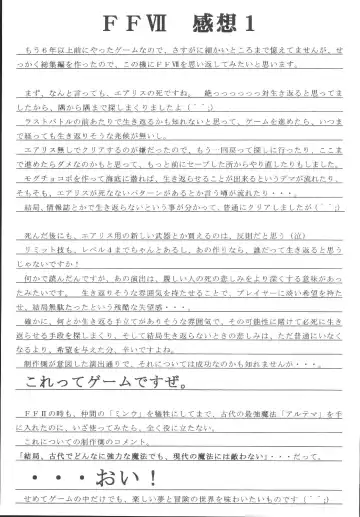 ＦＦⅦ　感想１
もう６年以上前にやったゲームなので、さすがに細かいところまで憶えてませんが、せ
っかく総集編を作ったので、この機にＦＦⅦを思い返してみたいと思います。
まず、なんと言っても、エアリスの死ですね。　絶っっっっっっ対生き返ると思ってま
したから、隅から隅まで探しまくりましたよ（＾＾；）
ラストバトルの前あたりで生き返るかも知れないと思って、ゲームを進めたら、いつま
で経っても生き返りそうな兆候が無いし。
エアリス無しでクリアするのが嫌だったので、もう一回戻って探しに行ったり、ここま
で進めたらダメなのかもと思って、もっと前にセーブした所からやり直したりもしました。
モグチョコボを作って海底に潜れば、生き返らせることが出来るというデマが流れたり、
そもそも、エアリスが死なないパターンがあるとか言う噂が流れたり・・・。
結局、情報誌とかで生き返らないという事が分かって、普通にクリアしましたが（＾＾；）
死んだ後にも、エアリス用の新しい武器とか買えるのは、反則だと思う（泣）
リミット技も、レベル４までちゃんとあるし、あの作りなら、誰だって生き返ると思う
じゃないですか！
何かで読んだんですが、あの演出は、麗しい人の死の悲しみをより深くする意味があっ
たみたいです。　生き返りそうな雰囲気を持たせることで、プレイヤーに淡い希望を持た
せ、結局無駄だったという残酷な失望感・・・。
確かに、何とか生き返る手立てがありそうな雰囲気で、その可能性に賭けて必死に生き
返らせる手段を探しまくり、そして結局生き返らないときの悲しみは、ただ普通にいなく
なるより、希望を与えた分、辛いですよね。
制作側が意図した演出通りで、それについては成功なのかも知れませんが・・・。
これってゲームですぜ。
ＦＦⅡの時も、仲間の「ミンウ」を犠牲にしてまで、古代の最強魔法「アルテマ」を手
に入れたのに、いざ使ってみたら、全く役に立たない。
これについての制作側のコメント。
「結局、古代でどんなに強力な魔法でも、現代の魔法には敵わない」・・・だって。
・・・おい！
せめてゲームの中だけでも、楽しい夢と冒険の世界を味わいたいものです（＾＾；）